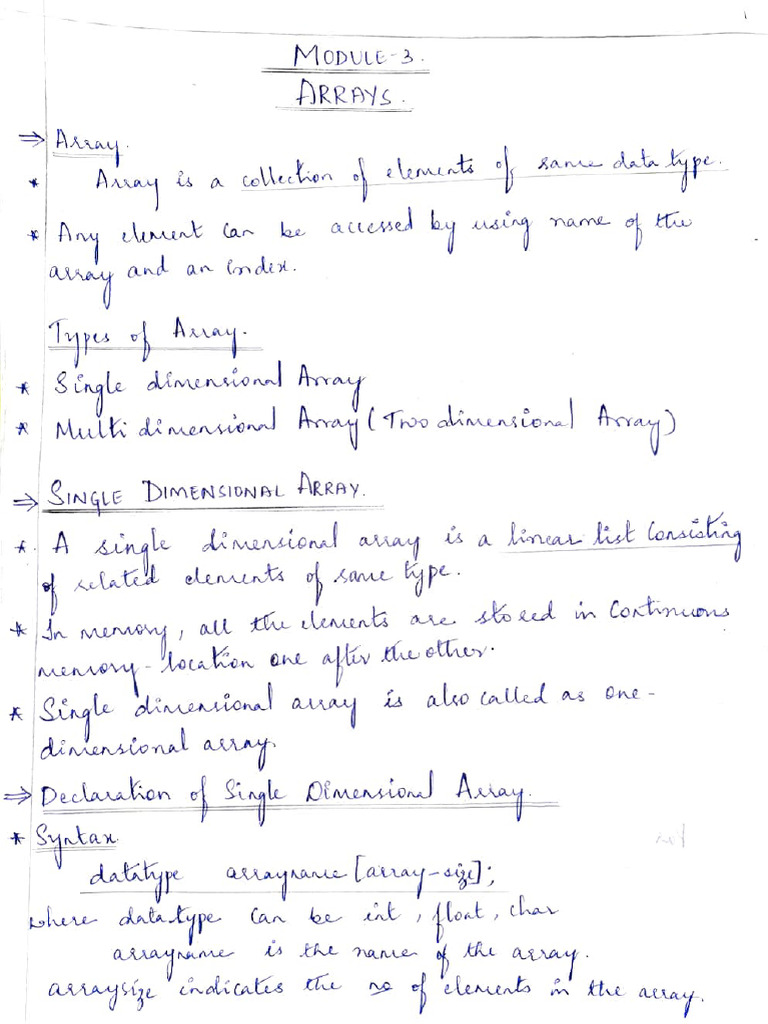 1
MODULE-3.
ARRAYS.
⇒ Array.
* Array is a collection of elements of same data type.
* Any element can be accessed by using name of the
array and an index.
Types of Array.
* Single dimensional Array
* Multi dimensional Array (Two dimensional Array)
⇒ SINGLE DIMENSIONAL ARRAY.
*. A single dimensional array is a linear list consisting
of related elements of same type.
* In memory, all the elements are stored in continuous
memory-location one after the other.
* Single dimensional array is also called as one-
dimensional array.
⇒ Declaration of Single Dimensional Array.
* Syntax
datatype arrayname [array-size];
where datatype can be int, float, char
arrayname is the name of the array.
arraysize indicates the no of elements in the array.